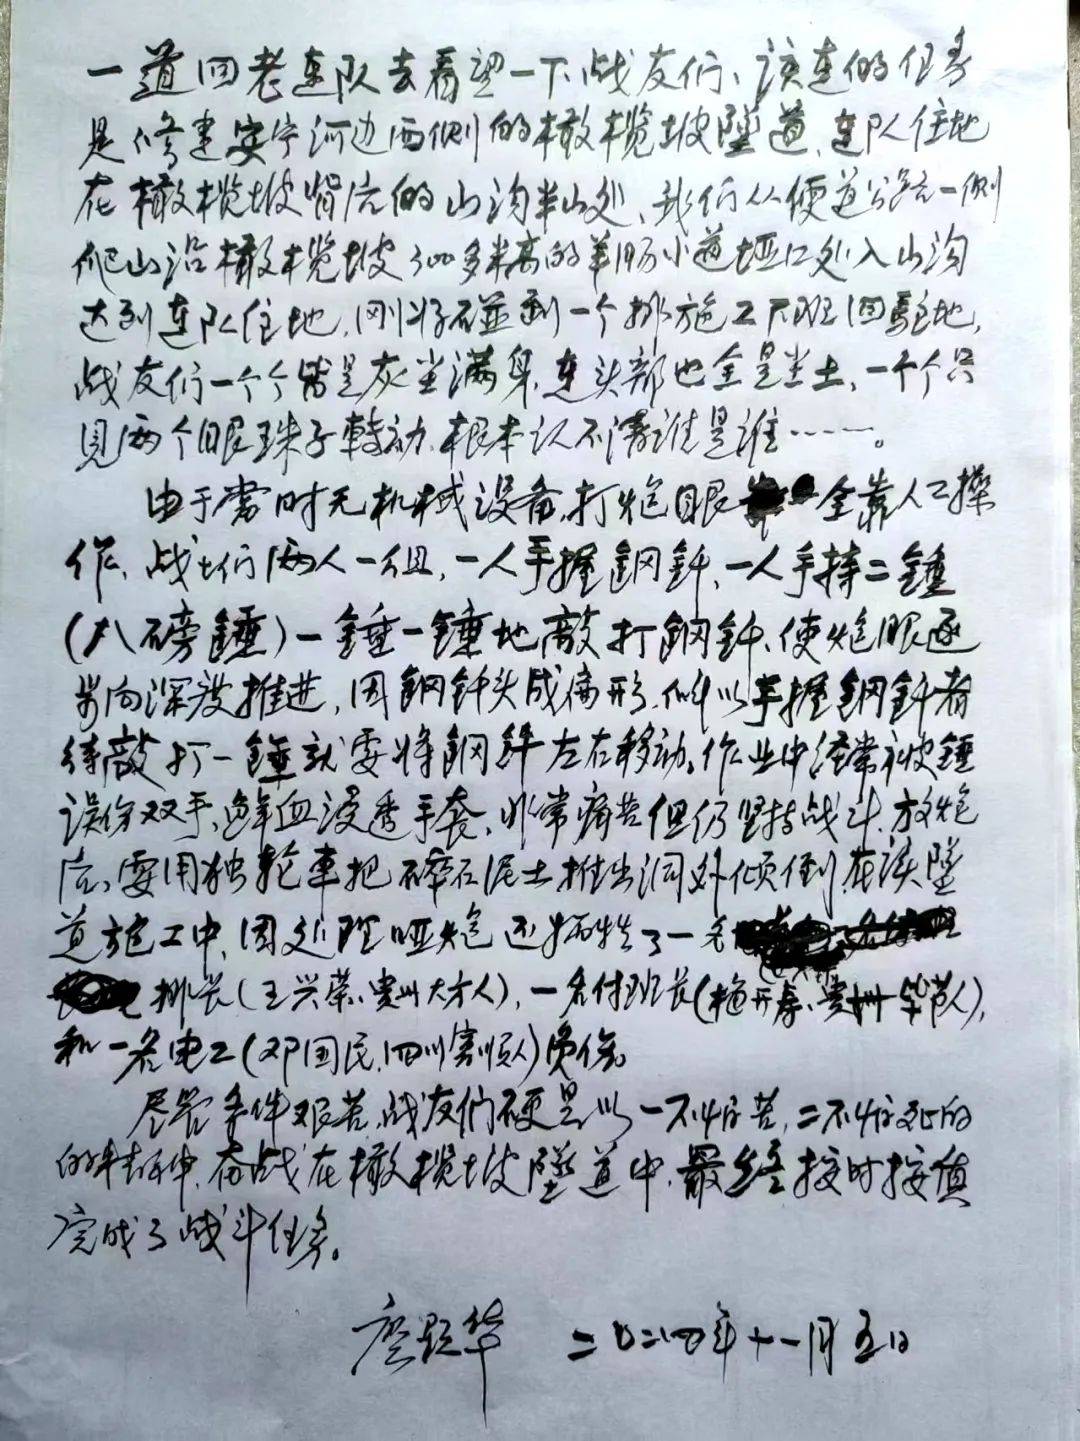 一道回老连队去看望一下战友们、该连的任务
是修建安宁河边西侧的橄榄坡坠道、连队住地
在橄榄坡背后的山沟半山处、我们从便道公路一侧
爬山沿橄榄坡300多米高的羊肠小道垭口处入山沟
达到连队住地，刚好碰到一个排施工下班回驻地，
战友们一个个皆是灰尘满身，连头部也全是尘土，一个个只
见两个眼珠子转动，根本认不清谁是谁……。
由于当时无机械设备，打炮眼全靠人工操
作、战士们两人一组，一人手握钢钎，一人手持二锤
(八磅锤)一锤一锤地敲打钢钎，使炮眼逐
步向深度推进，因钢钎头成扁形，所以手握钢钎者
待敲打一锤就要将钢钎左右移动。作业中经常被锤
误伤双手，鲜血浸透手套、非常痛苦但仍坚持战斗，放炮
后、要用独轮车把碎石泥土推出洞外倾倒，在该坠
道施工中，因处理哑炮还牺牲了一名
排长(王兴荣、贵州大方人)，一名付班长(梅开寿、贵州毕节人)，
和一名电工(邓国民，四川富顺人)负伤。
尽管条件艰苦，战友们硬是以一不怕苦，二不怕死的
的精神，奋战在橄榄坡坠道中，最终按时按质
完成了战斗任务。
廖华 二〇二四年十一月五日